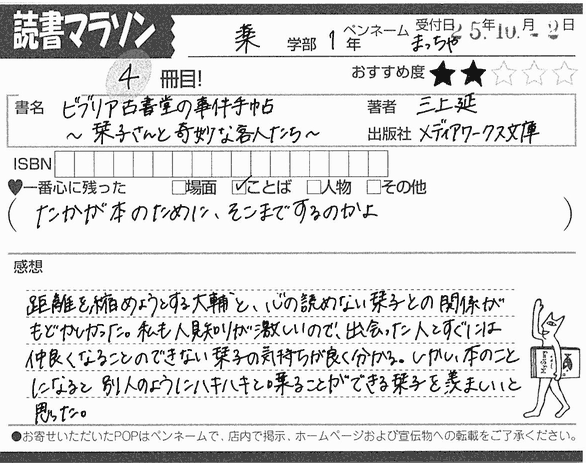 読書マラソン
薬 学部 1年 ペンネーム まっちゃ 受付日 25年10月-2日
4 冊目!
おすすめ度 ★★☆☆☆
書名 ビブリア古書堂の事件手帖
〜栞子さんと奇妙な客人たち〜
著者 三上延
出版社 メディアワークス文庫
ISBN
♥一番心に残った □場面 ☑ことば □人物 □その他
(たかが本のために、そこまでするのかよ)
感想
距離を縮めようとする大輔と、心の読めない栞子との関係が
もどかしかった。私も人見知りが激しいので、出会った人とすぐには
仲良くなることのできない栞子の気持ちが良く分かる。しかし、本のこと
になると別人のようにハキハキと喋ることができる栞子を羨ましいと
思った。
●お寄せいただいたPOPはペンネームで、店内で掲示、ホームページおよび宣伝物への転載をご了承ください。